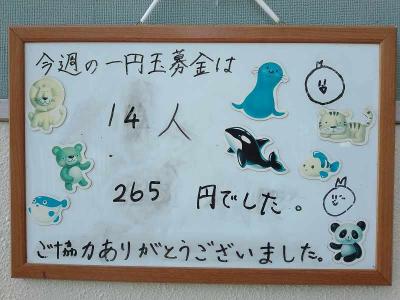 今週の一円玉募金は
14人
265 円でした。
ご協力ありがとうございました。